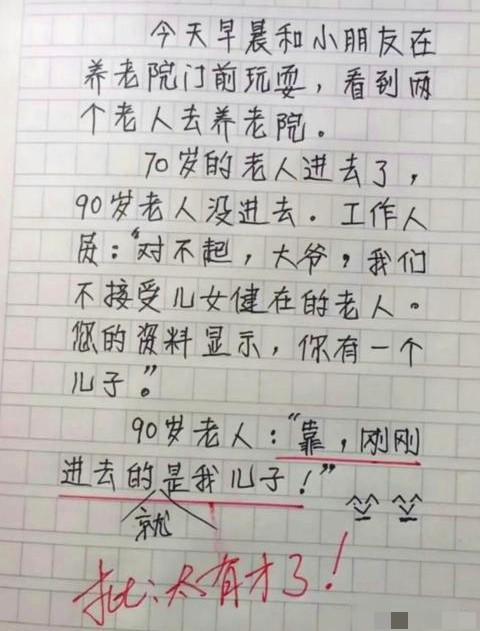 今天早晨和小朋友在
养老院门前玩耍，看到两
个老人去养老院。
70岁的老人进去了，
90岁老人没进去。工作人
员："对不起，大爷，我们
不接受儿女健在的老人。
您的资料显示，你有一个
儿子"。
90岁老人："靠，刚刚
进去的是我儿子！"
就
批：太有才了！